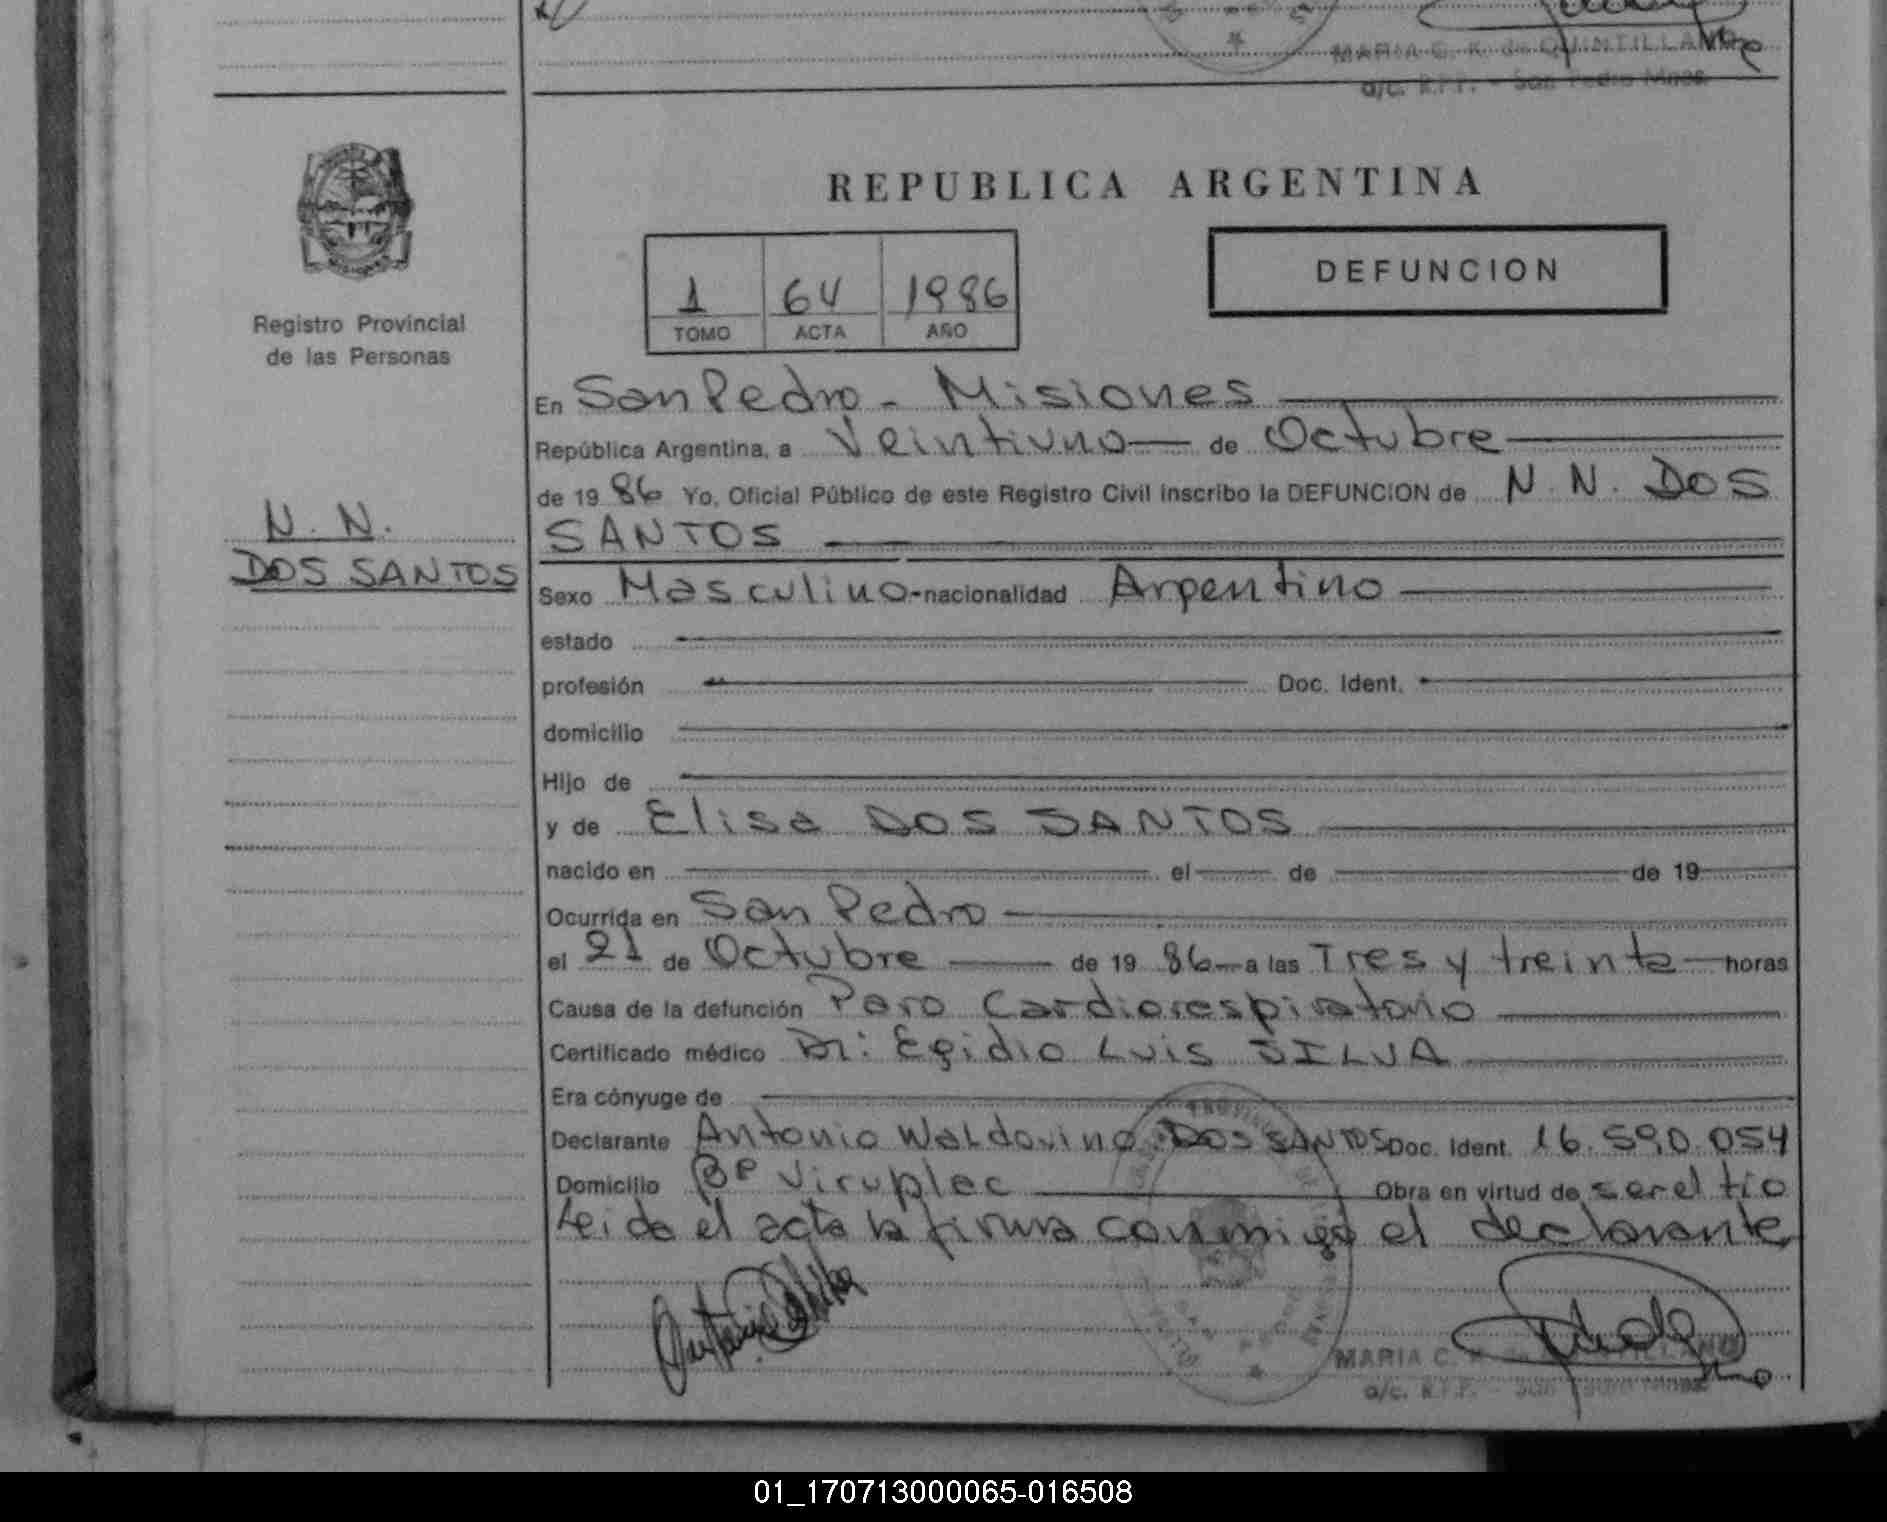 MARIA C. K. de QUINTILLANO
a/c. R.P.P. - San Pedro Mnes
REPUBLICA ARGENTINA
DEFUNCION
1 64 1986
TOMO ACTA AÑO
Registro Provincial
de las Personas
N. N.
DOS SANTOS
En San Pedro - Misiones
República Argentina, a Veintiuno de Octubre
de 19 86 Yo, Oficial Público de este Registro Civil inscribo la DEFUNCION de N. N. DOS
SANTOS
Sexo Masculino - nacionalidad Argentino
estado
profesión Doc. Ident.
domicilio
Hijo de
y de Elisa DOS SANTOS
nacido en el de de 19
Ocurrida en San Pedro
el 21 de Octubre de 19 86 a las Tres y treinta horas
Causa de la defunción Paro Cardiorespiratorio
Certificado médico Dr: Egidio Luis SILVA
Era cónyuge de
Declarante Antonio Waldovino DOS SANTOS Doc. Ident. 16.590.054
Domicilio Bº Piruplec Obra en virtud de ser el tío
Leida el acta la firma conmigo el declarante
MARIA C. K. de QUINTILLANO
a/c. R.P.P. - San Pedro Mnes
01_170713000065-016508